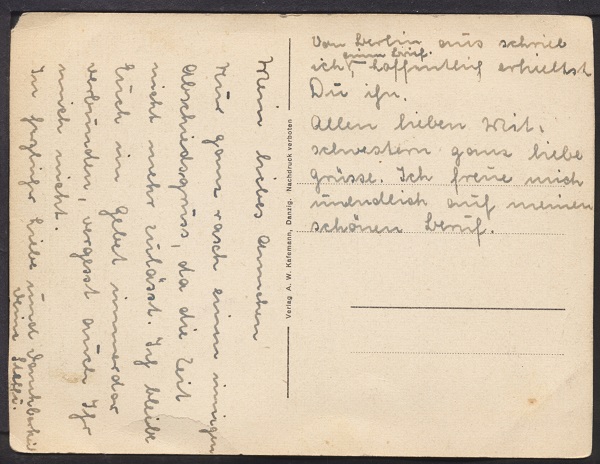 Mein liebes Annchen
Nur ganz rasch einen innigen
Abschiedsgruss, da die Zeit
nicht mehr zulässt. Ich bleibe
Euch im Gebet immerdar
verbunden, vergesst auch Ihr
mich nicht.
In inniger Liebe und Dankbarkeit
Deine Steffi.
Verlag A. W. Kafemann, Danzig. Nachdruck verboten
Von Berlin aus schrieb
einen Brief.
ich, hoffentlich erhieltst
Du ihn.
Allen lieben Mit-
schwestern ganz liebe
grüsse. Ich freue mich
unendlich auf meinen
schönen Beruf.